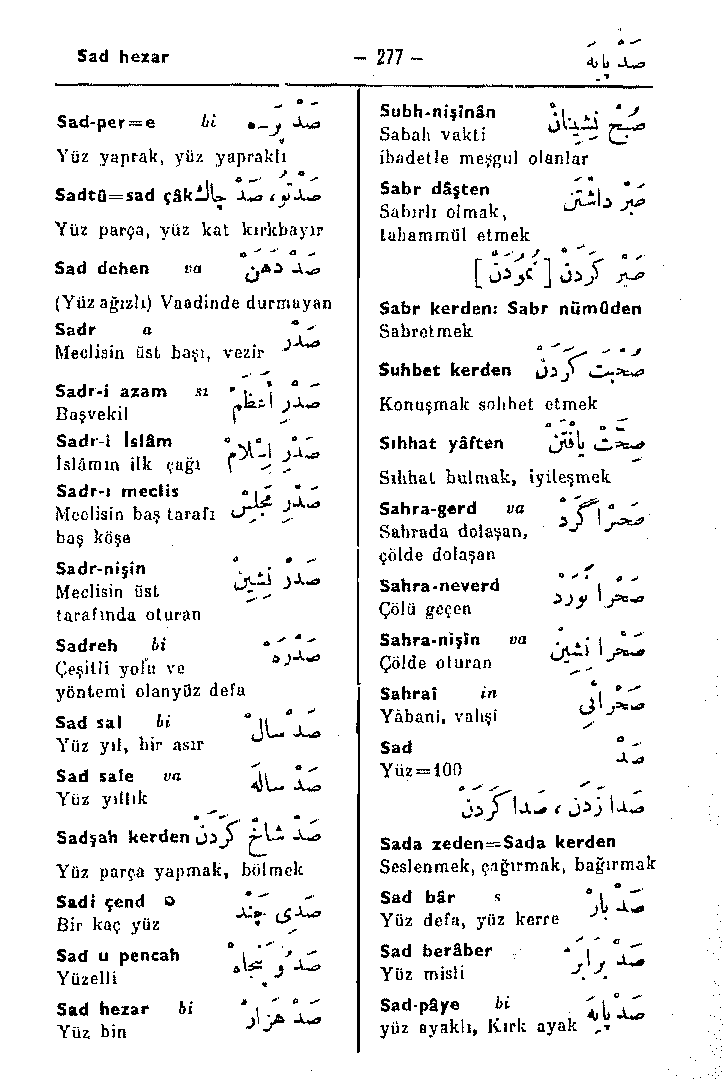 Sad hezar – 277 – صَدْ پَايَه
Sad-per=e bi صَدْ پَرْ-ه
Yüz yaprak, yüz yapraklı
Sadtû=sad çâk صَدْتُو، صَدْ چَاكْ
Yüz parça, yüz kat kırkbayır
Sad dehen va صَدْ دَهَنْ
(Yüz ağızlı) Vaadinde durmayan
Sadr a صَدْر
Meclisin üst başı, vezir
Sadr-i azam si صَدْرِ أَعْظَمْ
Başvekil
Sadr-i İslâm صَدْرِ اِسْلَامْ
İslâmın ilk çağı
Sadr-ı meclis صَدْرِ مَجْلِسْ
Meclisin baş tarafı
baş köşe
Sadr-nişin صَدْر نِشِينْ
Meclisin üst
tarafında oturan
Sadreh bi صَدْرَهْ
Çeşitli yolu ve
yöntemi olanyüz defa
Sad sal bi صَدْ سَالْ
Yüz yıl, bir asır
Sad sale va صَدْ سَالَه
Yüz yıllık
Sadşah kerden صَدْ شَاخْ كَرْدَنْ
Yüz parça yapmak, bölmek
Sadi çend o صَدِى چَنْد
Bir kaç yüz
Sad u pencah صَدْ وُ پَنْجَاه
Yüzelli
Sad hezar bi صَدْ هَزَار
Yüz bin
Subh-nişînân صُبْح نِشِينَانْ
Sabah vakti
ibadetle meşgul olanlar
Sabr dâşten صَبْر دَاشْتَنْ
Sabırlı olmak,
tahammül etmek
صَبْر كَرْدَنْ [ نُمُودَنْ ]
Sabr kerden: Sabr nümûden
Sabretmek
Suhbet kerden صُحْبَتْ كَرْدَنْ
Konuşmak sohbet etmek
Sıhhat yâften صِحَّتْ يَافْتَنْ
Sıhhat bulmak, iyileşmek
Sahra-gerd va صَحْرَا گَرْد
Sahrada dolaşan,
çölde dolaşan
Sahra-neverd صَحْرَا نَوَرْد
Çölü geçen
Sahra-nişîn va صَحْرَا نِشِينْ
Çölde oturan
Sahraî in صَحْرَائِى
Yâbani, vahşi
Sad صَدْ
Yüz=100
صَدَا زَدَنْ ، صَدَا كَرْدَنْ
Sada zeden=Sada kerden
Seslenmek, çağırmak, bağırmak
Sad bâr s صَدْ بَارْ
Yüz defa, yüz kerre
Sad berâber صَدْ بَرَابَرْ
Yüz misli
Sad-pâye bi صَدْ پَايَه
yüz ayaklı, Kırk ayak